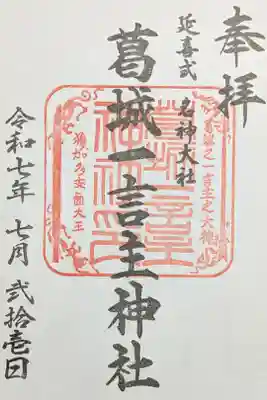 奉拝
延喜式
名神大社
葛城一言主神社
葛城之一言主之大神
令和七年 七月 弐拾壱日